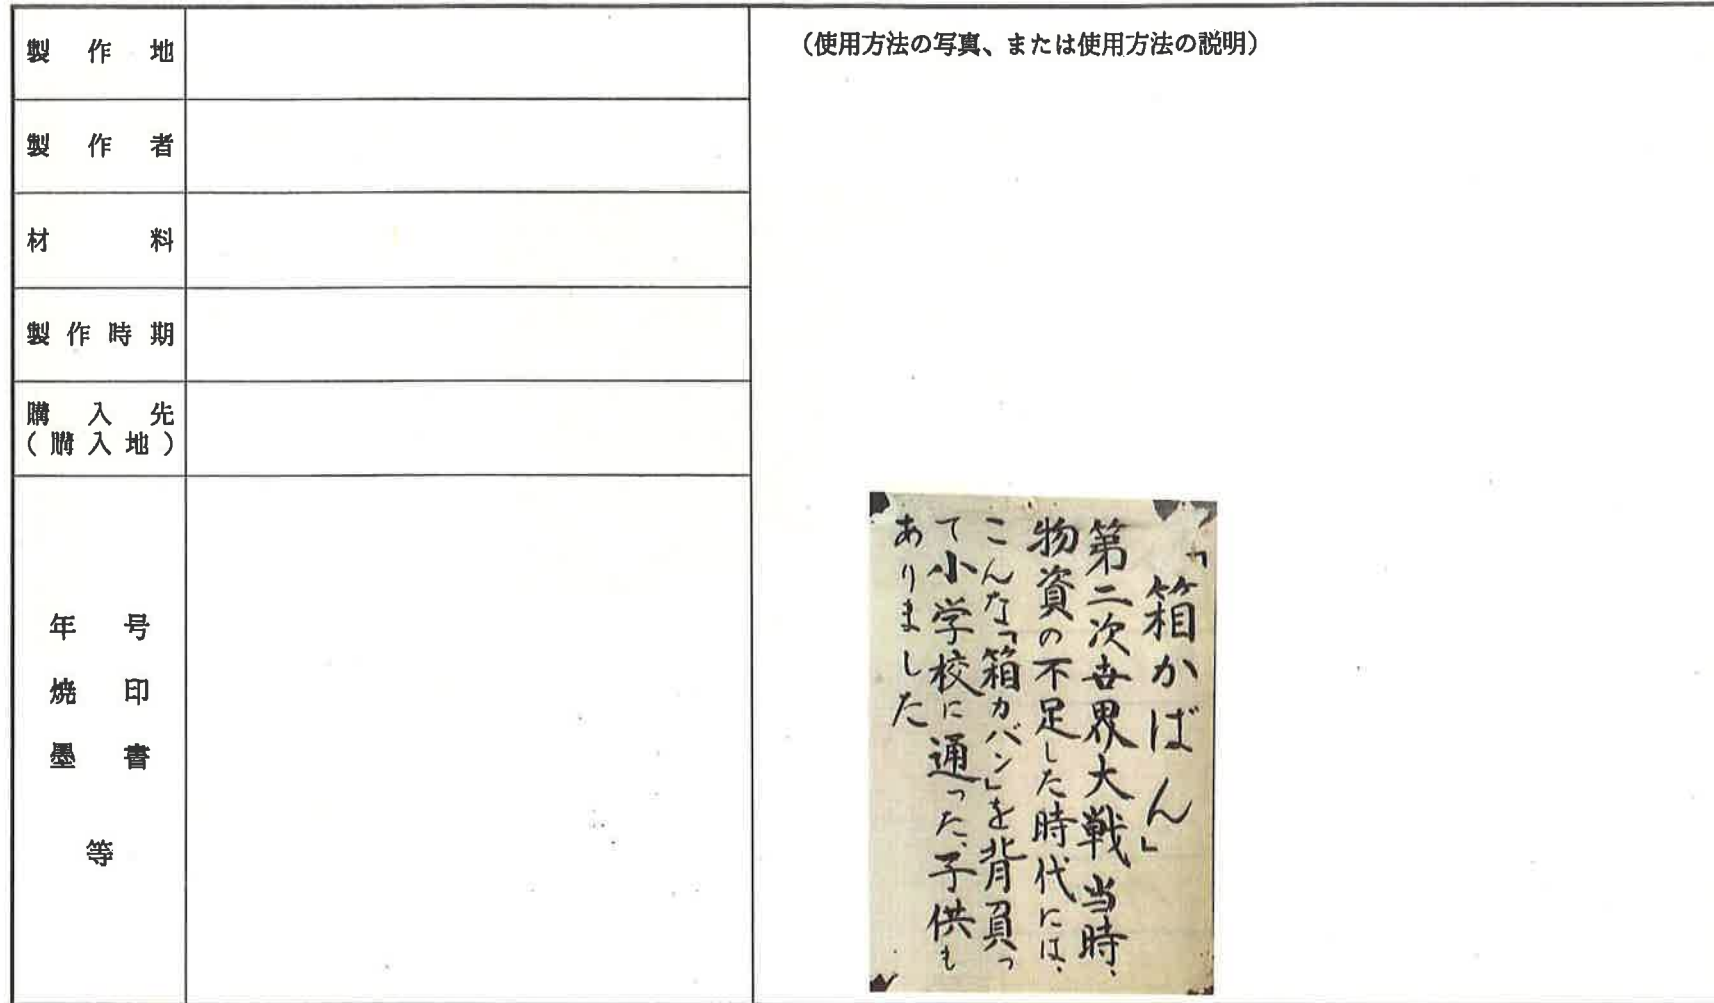 製作地
製作者
材料
製作時期
購入先
(購入地)
年号
焼印
墨書
等
(使用方法の写真、または使用方法の説明)
「箱かばん」
第二次世界大戦当時、
物資の不足した時代には、
こんな「箱カバン」を背負っ
て小学校に通った、子供も
ありました